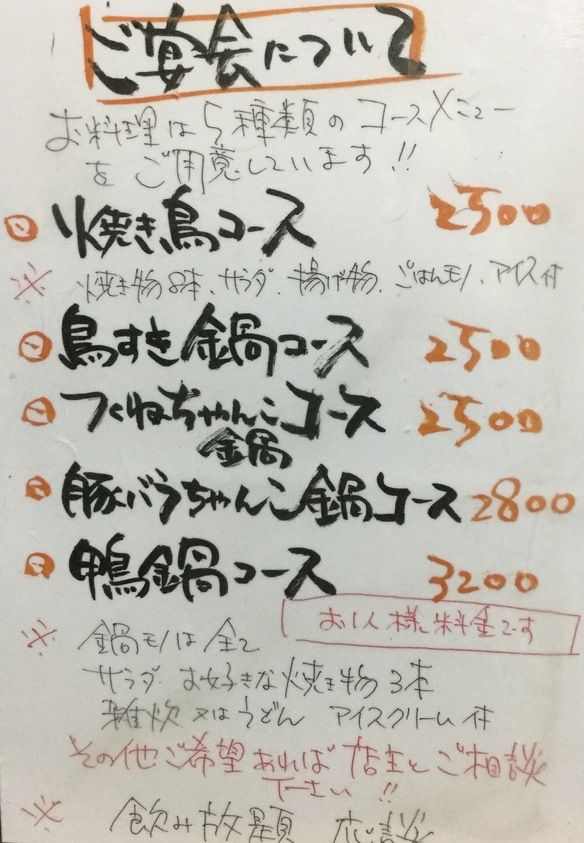 ご宴会について
お料理は5種類のコースメニュー
をご用意しています!!
焼き鳥コース 2500
※ 焼き物8本、サラダ、揚げ物、ごはんモノ、アイス付
鳥すき鍋コース 2500
つくねちゃんこ鍋コース 2500
豚バラちゃんこ鍋コース 2800
鴨鍋コース 3200
お1人様料金です
※ 鍋モノは全て
サラダ お好きな焼き物3本
雑炊又はうどん アイスクリーム付
その他ご希望あれば店主とご相談
下さい!!
※ 飲み放題 応談